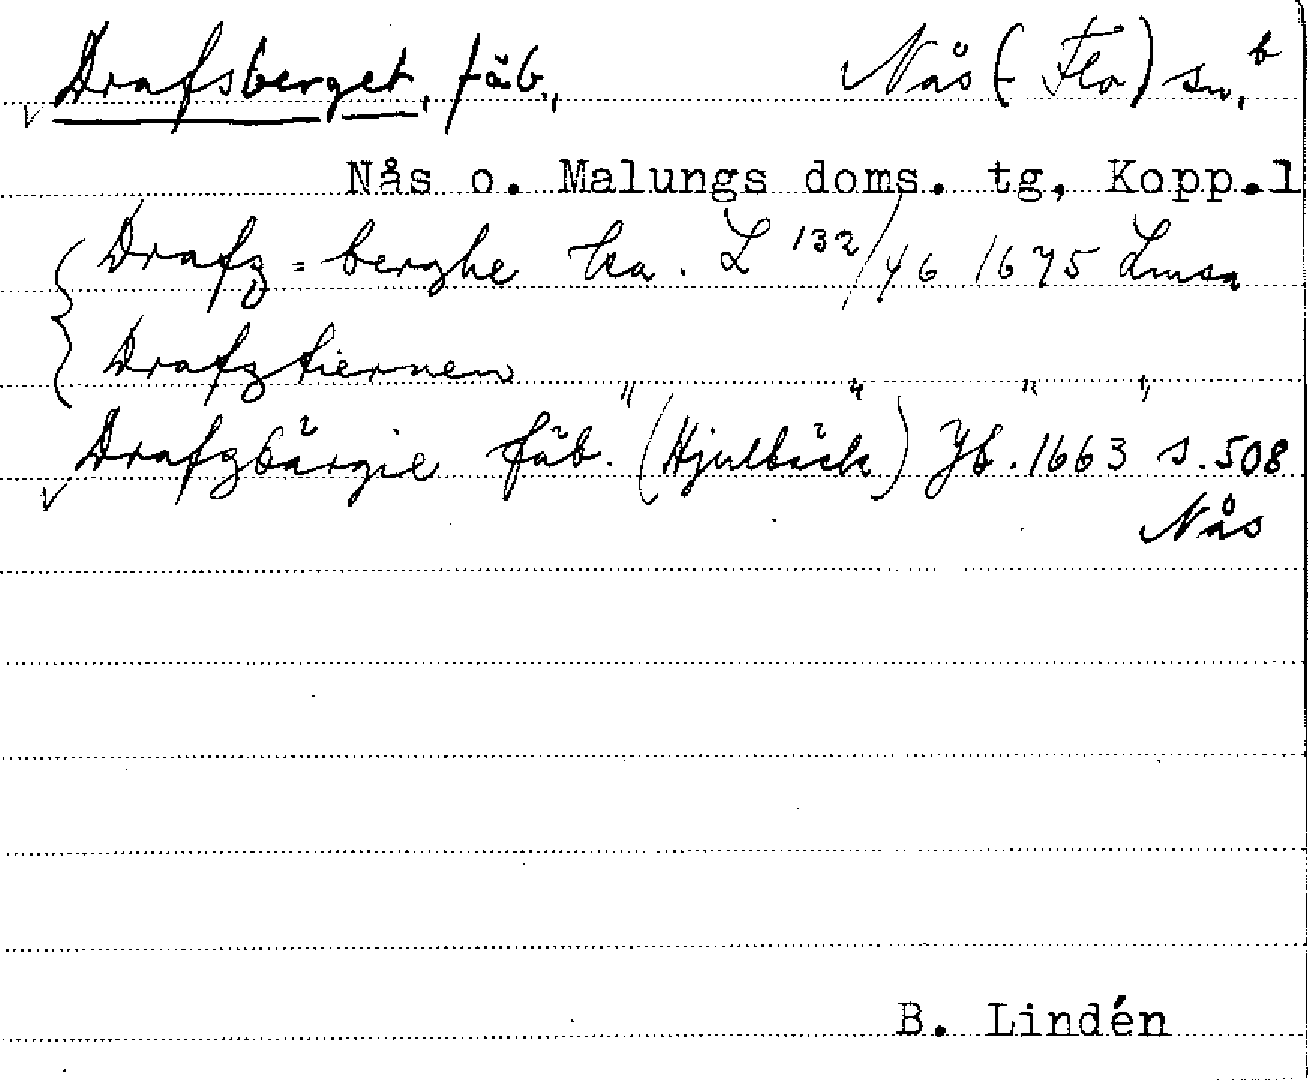 Drafsberget, fäb., Nås (- Flo) sn, b
Nås o. Malungs doms. tg, Kopp.l
Drafz=berghe ka. L 132/46 1675 Lmsa
Drafztiernen " " " "
Drafzbärgie fäb. (Hjulbäck) Jb. 1663 s. 508
Nås
B. Lindén